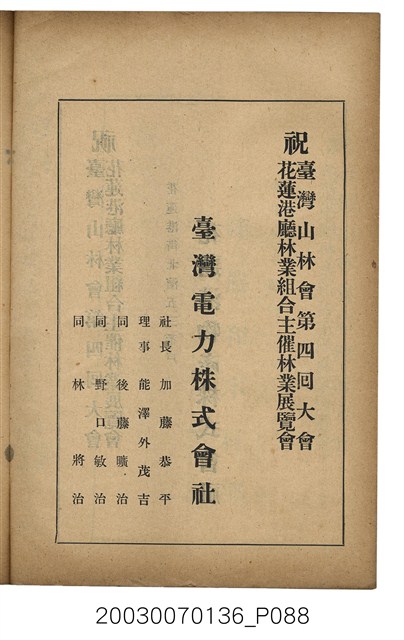 祝
臺灣山林會第四囘大會
花蓮港廳林業組合主催林業展覽會
臺灣電力株式會社
社長 加藤恭平
理事 能澤外茂吉
同 後藤曠治
同 野口敏治
同 林將治
20030070136_P088